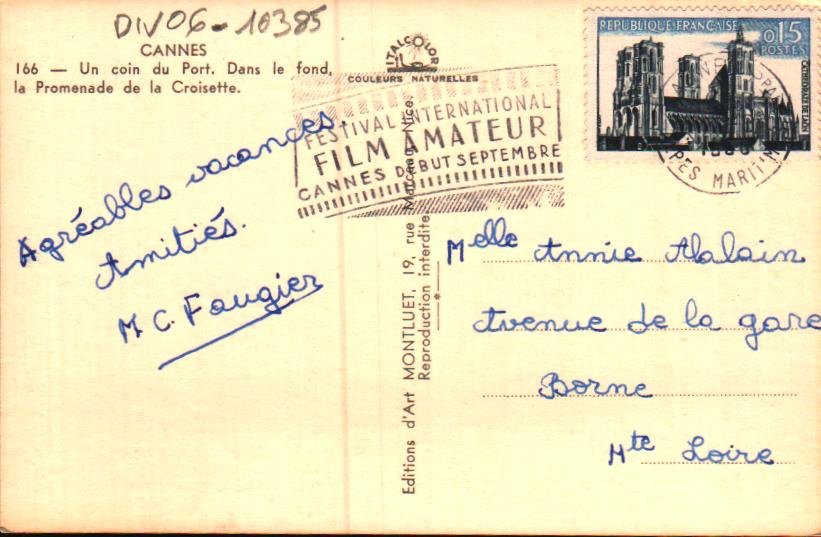 DIV06-10385
CANNES
166 — Un coin du Port. Dans le fond,
la Promenade de la Croisette.
ITALCOLOR
COULEURS NATURELLES
FESTIVAL INTERNATIONAL
FILM AMATEUR
CANNES DEBUT SEPTEMBRE
REPUBLIQUE FRANÇAISE
0,15
POSTES
CATHÉDRALE DE LAON
PES MARIT
Agréables vacances.
Amitiés.
M. C. Fougier
Editions d'Art MONTLUET, 19, rue Nice.
Reproduction interdite
Melle Annie Alalain
Avenue de la gare
Borne
Hte Loire